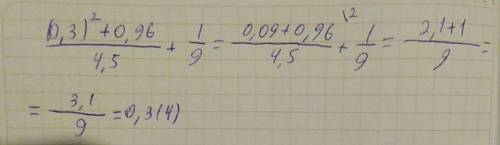 (0,3)² + 0,96 / 4,5 + 1/9 = 0,09 + 0,96 / 4,5 \2 + 1/9 = 2,1 + 1 / 9 =
= 3,1 / 9 = 0,3(4)